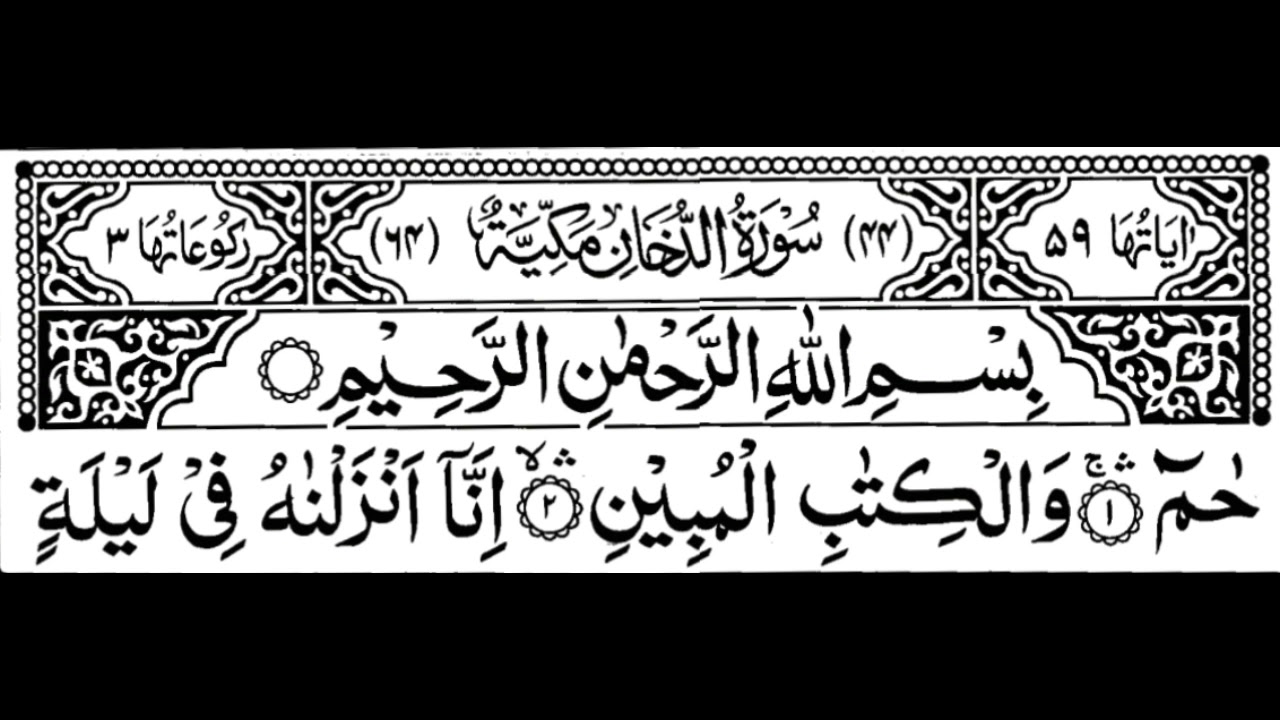 اٰيَاتُهَا ٥٩ (٤٤) سُوْرَةُ الدُّخَانِ مَكِّيَّةٌ (٦٤) رُكُوْعَاتُهَا ٣
بِسْمِ اللّٰهِ الرَّحْمٰنِ الرَّحِيْمِ
حٰمٓ ۚۛ ١ وَالْكِتٰبِ الْمُبِيْنِ ۙۛ ٢ اِنَّآ اَنْزَلْنٰهُ فِيْ لَيْلَةٍ